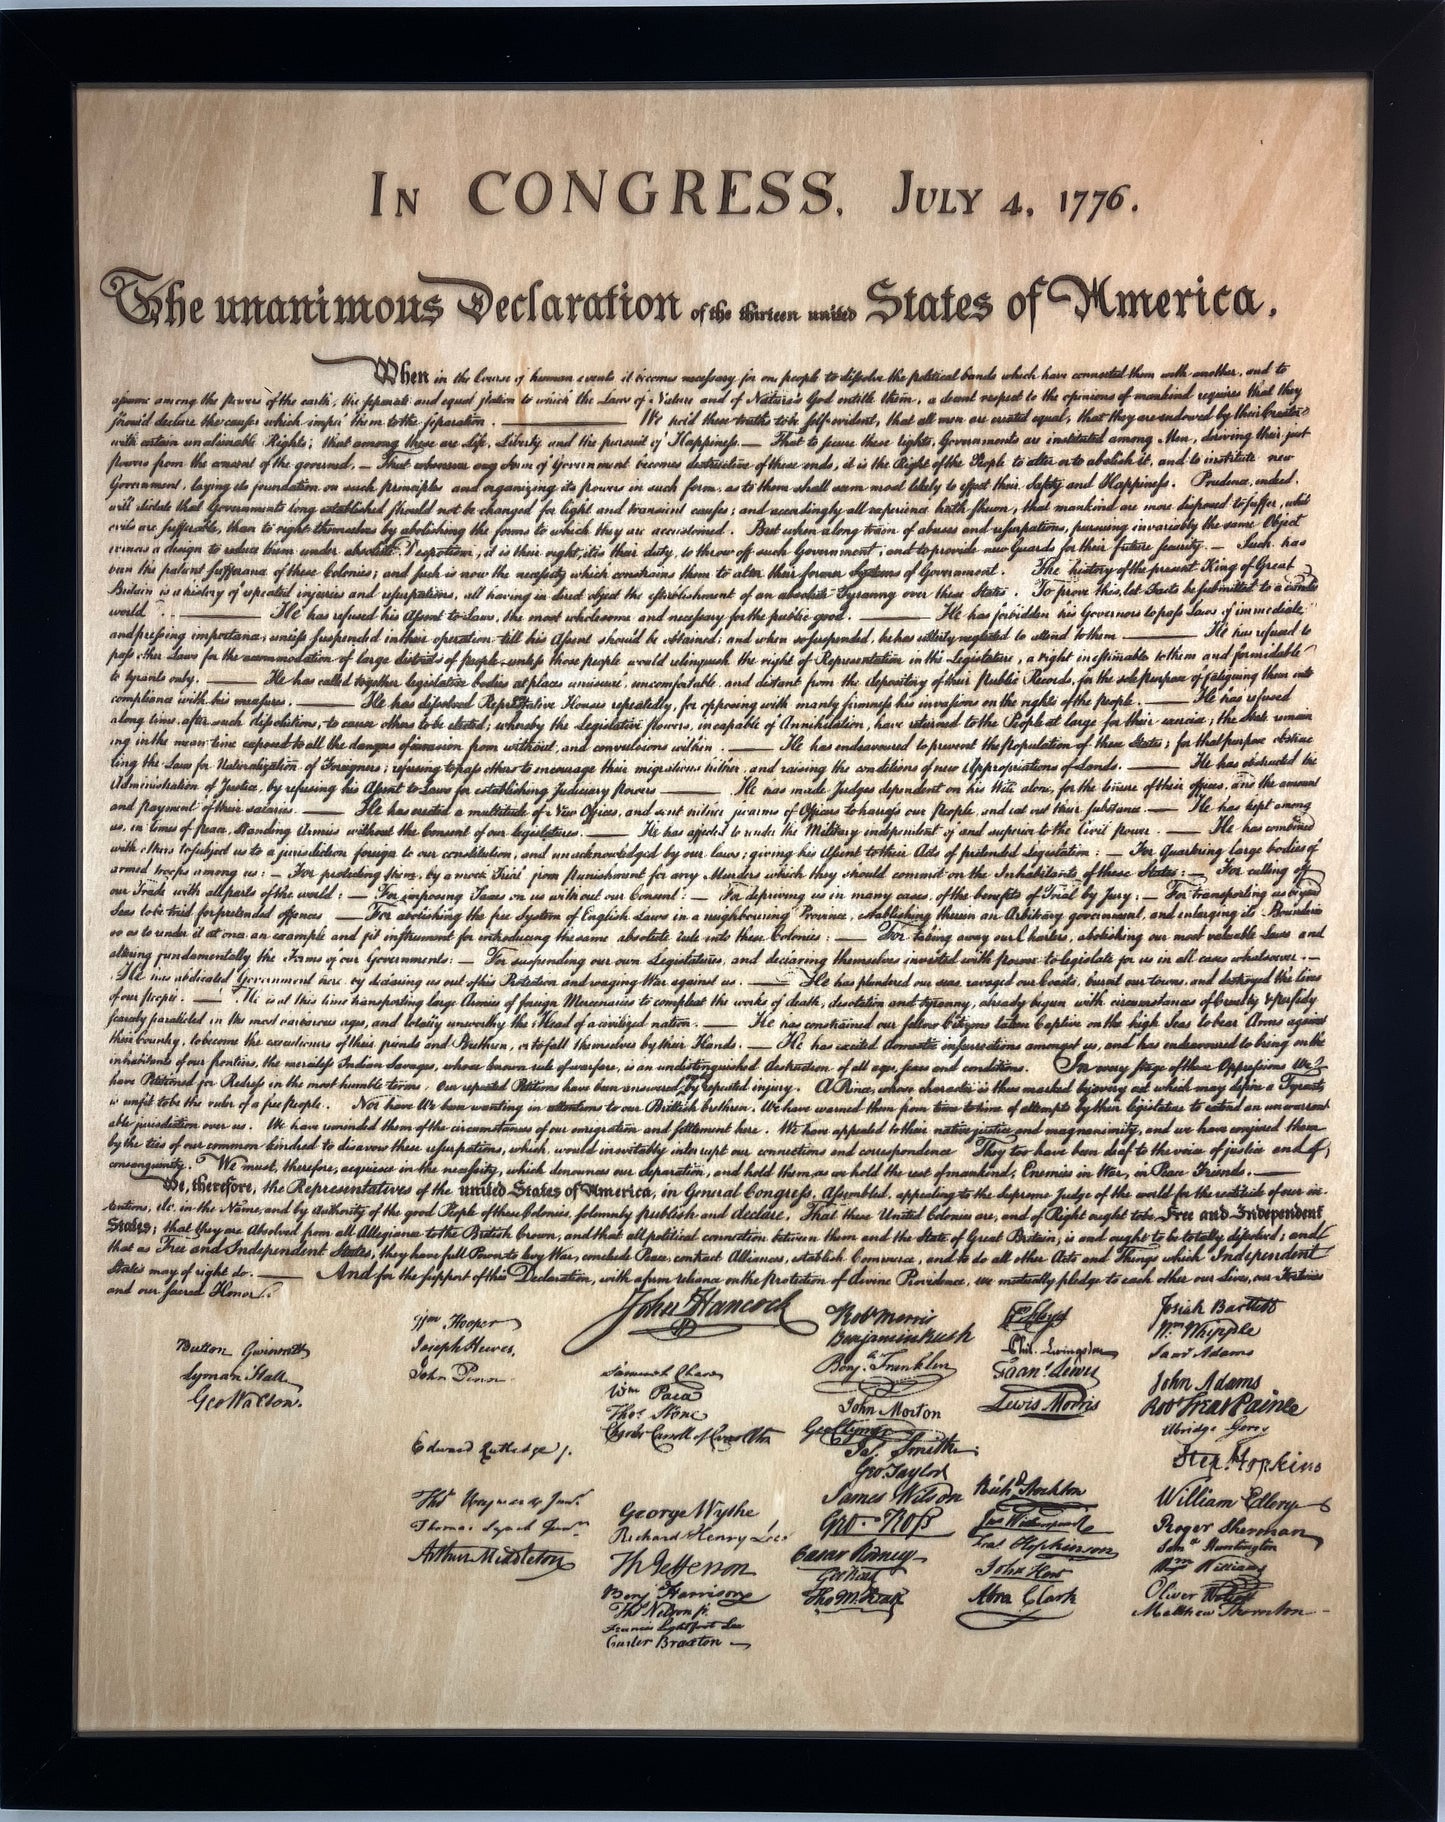 In CONGRESS, July 4, 1776.
The unanimous Declaration of the thirteen united States of America.
When in the Course of human events it becomes necessary for one people to dissolve the political bands which have connected them with another, and to
assume among the powers of the earth, the separate and equal station to which the Laws of Nature and of Nature's God entitle them, a decent respect to the opinions of mankind requires that they
should declare the causes which impel them to the separation. We hold these truths to be self-evident, that all men are created equal, that they are endowed by their Creator
with certain unalienable Rights; that among these are Life, Liberty and the pursuit of Happiness.— That to secure these rights, Governments are instituted among Men, deriving their just
powers from the consent of the governed,— That whenever any Form of Government becomes destructive of these ends, it is the Right of the People to alter or to abolish it, and to institute new
Government, laying its foundation on such principles and organizing its powers in such form, as to them shall seem most likely to effect their Safety and Happiness. Prudence, indeed,
will dictate that Governments long established should not be changed for light and transient causes; and accordingly all experience hath shewn, that mankind are more disposed to suffer, while
evils are sufferable, than to right themselves by abolishing the forms to which they are accustomed. But when a long train of abuses and usurpations, pursuing invariably the same Object
evinces a design to reduce them under absolute Despotism, it is their right, it is their duty, to throw off such Government, and to provide new Guards for their future security.— Such has
been the patient sufferance of these Colonies; and such is now the necessity which constrains them to alter their former Systems of Government. The history of the present King of Great
Britain is a history of repeated injuries and usurpations, all having in direct object the establishment of an absolute Tyranny over these States. To prove this, let Facts be submitted to a candid
world. He has refused his Assent to Laws, the most wholesome and necessary for the public good. He has forbidden his Governors to pass Laws of immediate
and pressing importance, unless suspended in their operation till his Assent should be obtained; and when so suspended, he has utterly neglected to attend to them. He has refused to
pass other Laws for the accommodation of large districts of people, unless those people would relinquish the right of Representation in the Legislature, a right inestimable to them and formidable
to tyrants only. He has called together legislative bodies at places unusual, uncomfortable, and distant from the depository of their Public Records, for the sole purpose of fatiguing them into
compliance with his measures. He has dissolved Representative Houses repeatedly, for opposing with manly firmness his invasions on the rights of the people. He has refused
along time, after such dissolutions, to cause others to be elected; whereby the Legislative powers, incapable of Annihilation, have returned to the People at large for their exercise; the State remain
ing in the mean time exposed to all the dangers of invasion from without, and convulsions within. He has endeavoured to prevent the population of these States; for that purpose obstruc
ting the Laws for Naturalization of Foreigners; refusing to pass others to encourage their migrations hither, and raising the conditions of new Appropriations of Lands. He has obstructed the
Administration of Justice, by refusing his Assent to Laws for establishing Judiciary powers. He has made Judges dependent on his Will alone, for the tenure of their offices, and the amount
and payment of their salaries. He has erected a multitude of New Offices, and sent hither swarms of Officers to harass our People, and eat out their substance. He has kept among
us, in times of peace, Standing Armies without the Consent of our legislatures. He has affected to render the Military independent of and superior to the Civil power. He has combined
with others to subject us to a jurisdiction foreign to our constitution, and unacknowledged by our laws; giving his Assent to their Acts of pretended Legislation:— For Quartering large bodies of
armed troops among us:— For protecting them, by a mock Trial from punishment for any Murders which they should commit on the Inhabitants of these States:— For cutting off
our Trade with all parts of the world:— For imposing Taxes on us without our Consent:— For depriving us in many cases, of the benefits of Trial by Jury:— For transporting us beyond
Seas to be tried for pretended offences— For abolishing the free System of English Laws in a neighbouring Province, establishing therein an Arbitrary government, and enlarging its Boundaries
so as to render it at once an example and fit instrument for introducing the same absolute rule into these Colonies:— For taking away our Charters, abolishing our most valuable Laws and
altering fundamentally the Forms of our Governments:— For suspending our own Legislatures, and declaring themselves invested with power to legislate for us in all cases whatsoever.—
He has abdicated Government here, by declaring us out of his Protection and waging War against us.— He has plundered our seas, ravaged our Coasts, burnt our towns, and destroyed the lives
of our people.— He is at this time transporting large Armies of foreign Mercenaries to compleat the works of death, desolation and tyranny, already begun with circumstances of Cruelty & perfidy
scarcely paralleled in the most barbarous ages, and totally unworthy the Head of a civilized nation.— He has constrained our fellow Citizens taken Captive on the high Seas to bear Arms against
their Country, to become the executioners of their friends and Brethren, or to fall themselves by their Hands.— He has excited domestic insurrections amongst us, and has endeavoured to bring on the
inhabitants of our frontiers, the merciless Indian Savages, whose known rule of warfare, is an undistinguished destruction of all ages, sexes and conditions. In every stage of these Oppressions We
have Petitioned for Redress in the most humble terms: Our repeated Petitions have been answered only by repeated injury. A Prince, whose character is thus marked by every act which may define a Tyrant,
is unfit to be the ruler of a free People. Nor have We been wanting in attentions to our Brittish brethren. We have warned them from time to time of attempts by their legislature to extend an unwarrant
able jurisdiction over us. We have reminded them of the circumstances of our emigration and settlement here. We have appealed to their native justice and magnanimity, and we have conjured them
by the ties of our common kindred to disavow these usurpations, which, would inevitably interrupt our connections and correspondence They too have been deaf to the voice of justice and of
consanguinity. We must, therefore, acquiesce in the necessity, which denounces our Separation, and hold them, as we hold the rest of mankind, Enemies in War, in Peace Friends.
We, therefore, the Representatives of the united States of America, in General Congress, Assembled, appealing to the Supreme Judge of the world for the rectitude of our in-
tentions, do, in the Name, and by Authority of the good People of these Colonies, solemnly publish and declare, That these United Colonies are, and of Right ought to be Free and Independent
States; that they are Absolved from all Allegiance to the British Crown, and that all political connection between them and the State of Great Britain, is and ought to be totally dissolved; and
that as Free and Independent States, they have full Power to levy War, conclude Peace, contract Alliances, establish Commerce, and to do all other Acts and Things which Independent
States may of right do. And for the support of this Declaration, with a firm reliance on the Protection of divine Providence, we mutually pledge to each other our Lives, our Fortunes
and our sacred Honor.
Button Gwinnett
Lyman Hall
Geo Walton.
Wm Hooper
Joseph Hewes,
John Penn
Edward Rutledge Jr.
Thos Heyward Junr.
Thomas Lynch Junr.
Arthur Middleton
John Hancock
Samuel Chase
Wm Paca
Thos Stone
Charles Carroll of Carrollton
George Wythe
Richard Henry Lee
Th Jefferson
Benj Harrison
Thos Nelson jr.
Francis Lightfoot Lee
Carter Braxton
Robt Morris
Benjamin Rush
Benja Franklin
John Morton
Geo Clymer
Jas. Smith
Geo. Taylor
James Wilson
Geo. Ross
Caesar Rodney
Geo Read
Tho M:Kean
Wm Floyd
Phil. Livingston
Frans. Lewis
Lewis Morris
Richd Stockton
Jno Witherspoon
Fras Hopkinson
John Hart
Abra Clark
Josiah Bartlett
Wm Whipple
Saml Adams
John Adams
Robt Treat Paine
Elbridge Gerry
Step. Hopkins
William Ellery
Roger Sherman
Samel Huntington
Wm Williams
Oliver Wolcott
Matthew Thornton